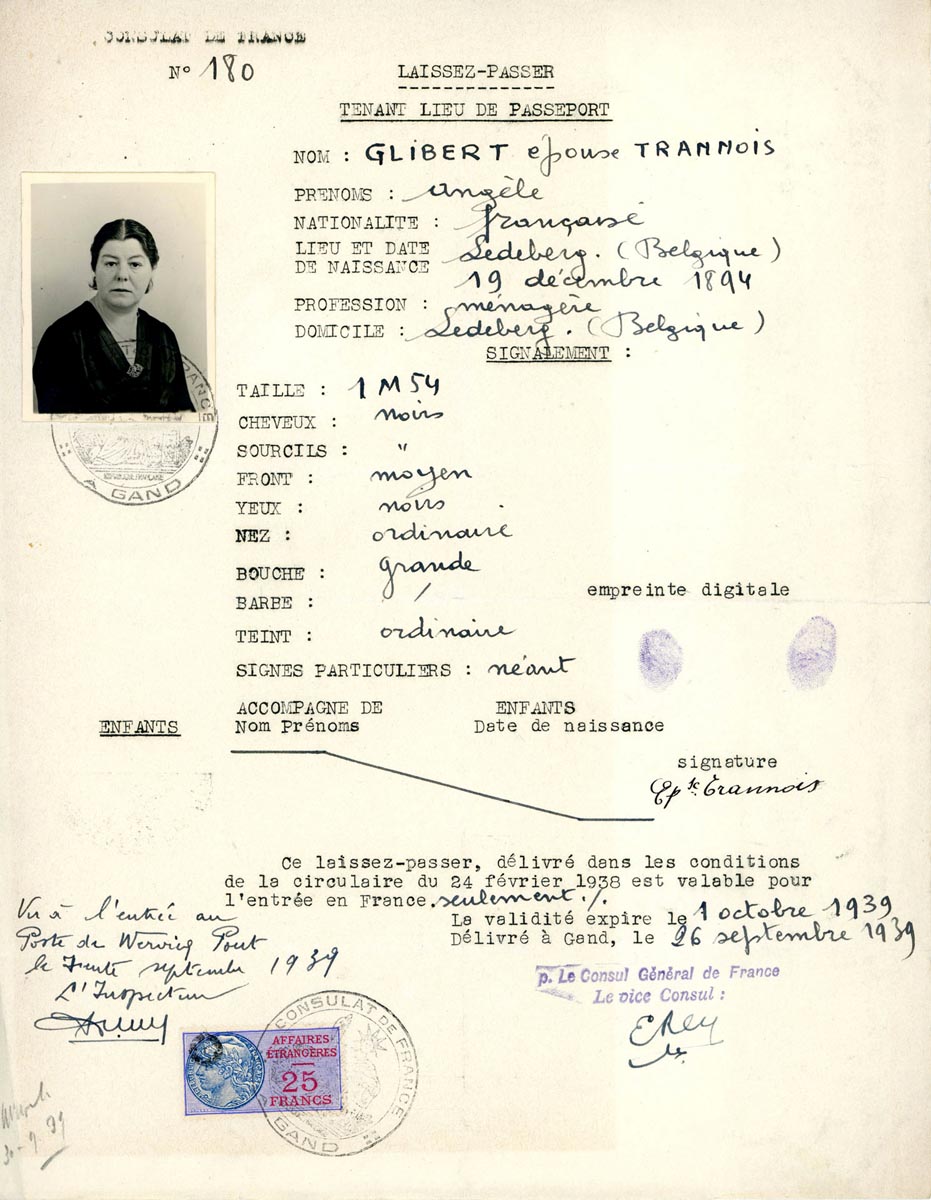 CONSULAT DE FRANCE
N° 180
LAISSEZ-PASSER
TENANT LIEU DE PASSEPORT
NOM : GLIBERT épouse TRANNOIS
PRENOMS : Angèle
NATIONALITE : française
LIEU ET DATE DE NAISSANCE Ledeberg. (Belgique)
19 décembre 1894
PROFESSION : ménagère
DOMICILE : Ledeberg. (Belgique)
SIGNALEMENT :
TAILLE : 1 M 54
CHEVEUX : noirs
SOURCILS : "
FRONT : moyen
YEUX : noirs
NEZ : ordinaire
BOUCHE : grande
BARBE : /
TEINT : ordinaire
SIGNES PARTICULIERS : néant
empreinte digitale
FRANCE
A GAND
ENFANTS
ACCOMPAGNE DE ENFANTS
Nom Prénoms Date de naissance
signature
Ep.se Trannois
Ce laissez-passer, délivré dans les conditions
de la circulaire du 24 février 1938 est valable pour
l'entrée en France.seulement./.
La validité expire le 1 octobre 1939
Délivré à Gand, le 26 septembre 1939
p. Le Consul Général de France
Le vice Consul :
Vu à l'entrée au
Poste de Wervicq Pont
le trente septembre 1939
L'Inspecteur
AFFAIRES
ÉTRANGÈRES
25
FRANCS
CONSULAT DE FRANCE
GAND
30-9-39